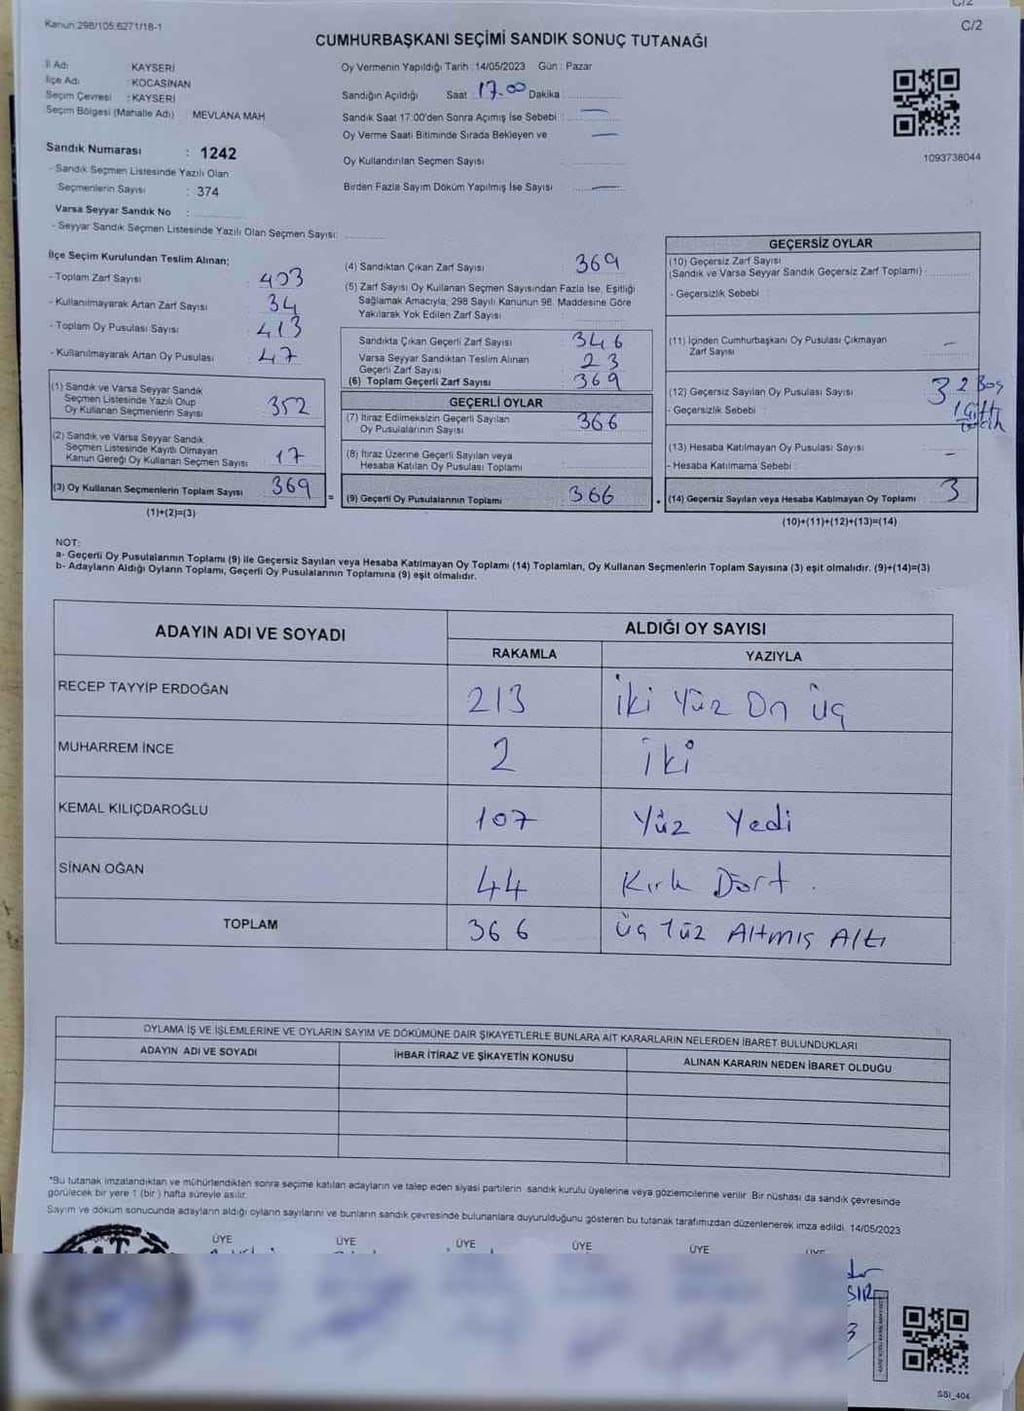 C/2
Kanun:298/105;6271/18-1
C/2
CUMHURBAŞKANI SEÇİMİ SANDIK SONUÇ TUTANAĞI
İl Adı : KAYSERİ
İlçe Adı : KOCASİNAN
Seçim Çevresi : KAYSERİ
Seçim Bölgesi (Mahalle Adı) : MEVLANA MAH
Sandık Numarası : 1242
- Sandık Seçmen Listesinde Yazılı Olan
Seçmenlerin Sayısı : 374
Varsa Seyyar Sandık No :
- Seyyar Sandık Seçmen Listesinde Yazılı Olan Seçmen Sayısı:
Oy Vermenin Yapıldığı Tarih : 14/05/2023 Gün : Pazar
Sandığın Açıldığı Saat 17.00 Dakika
Sandık Saat 17.00'den Sonra Açımış İse Sebebi : —
Oy Verme Saati Bitiminde Sırada Bekleyen ve —
Oy Kullandırılan Seçmen Sayısı
Birden Fazla Sayım Döküm Yapılmış İse Sayısı —
1093738044
İlçe Seçim Kurulundan Teslim Alınan;
- Toplam Zarf Sayısı : 403
- Kullanılmayarak Artan Zarf Sayısı : 34
- Toplam Oy Pusulası Sayısı : 413
- Kullanılmayarak Artan Oy Pusulası : 47
(1) Sandık ve Varsa Seyyar Sandık
Seçmen Listesinde Yazılı Olup
Oy Kullanan Seçmenlerin Sayısı 352
(2) Sandık ve Varsa Seyyar Sandık
Seçmen Listesinde Kayıtlı Olmayan
Kanun Gereği Oy Kullanan Seçmen Sayısı 17
(3) Oy Kullanan Seçmenlerin Toplam Sayısı 369
(1)+(2)=(3)
=
(4) Sandıktan Çıkan Zarf Sayısı 369
(5) Zarf Sayısı Oy Kullanan Seçmen Sayısından Fazla İse, Eşitliği
Sağlamak Amacıyla, 298 Sayılı Kanunun 98. Maddesine Göre
Yakılarak Yok Edilen Zarf Sayısı
Sandıkta Çıkan Geçerli Zarf Sayısı 346
Varsa Seyyar Sandıktan Teslim Alınan
Geçerli Zarf Sayısı 23
(6) Toplam Geçerli Zarf Sayısı 369
GEÇERLİ OYLAR
(7) İtiraz Edilmeksizin Geçerli Sayılan
Oy Pusulalarının Sayısı 366
(8) İtiraz Üzerine Geçerli Sayılan veya
Hesaba Katılan Oy Pusulası Toplamı
(9) Geçerli Oy Pusulalarının Toplamı 366
GEÇERSİZ OYLAR
(10) Geçersiz Zarf Sayısı
(Sandık ve Varsa Seyyar Sandık Geçersiz Zarf Toplamı)
- Geçersizlik Sebebi
(11) İçinden Cumhurbaşkanı Oy Pusulası Çıkmayan
Zarf Sayısı —
(12) Geçersiz Sayılan Oy Pusulası Sayısı 3 2 Boş
- Geçersizlik Sebebi 1 Çift
(13) Hesaba Katılmayan Oy Pusulası Sayısı —
- Hesaba Katılmama Sebebi
(14) Geçersiz Sayılan veya Hesaba Katılmayan Oy Toplamı 3
(10)+(11)+(12)+(13)=(14)
NOT:
a- Geçerli Oy Pusulalarının Toplamı (9) ile Geçersiz Sayılan veya Hesaba Katılmayan Oy Toplamı (14) Toplamları, Oy Kullanan Seçmenlerin Toplam Sayısına (3) eşit olmalıdır. (9)+(14)=(3)
b- Adayların Aldığı Oyların Toplamı, Geçerli Oy Pusulalarının Toplamına (9) eşit olmalıdır.
ADAYIN ADI VE SOYADI ALDIĞI OY SAYISI
RAKAMLA YAZIYLA
RECEP TAYYİP ERDOĞAN 213 İki Yüz On üç
MUHARREM İNCE 2 İki
KEMAL KILIÇDAROĞLU 107 Yüz Yedi
SİNAN OĞAN 44 Kırk Dört .
TOPLAM 366 üç Yüz Altmış Altı
OYLAMA İŞ VE İŞLEMLERİNE VE OYLARIN SAYIM VE DÖKÜMÜNE DAİR ŞİKAYETLERLE BUNLARA AİT KARARLARIN NELERDEN İBARET BULUNDUKLARI
ADAYIN ADI VE SOYADI İHBAR İTİRAZ VE ŞİKAYETİN KONUSU ALINAN KARARIN NEDEN İBARET OLDUĞU
*Bu tutanak imzalandıktan ve mühürlendikten sonra seçime katılan adayların ve talep eden siyasi partilerin sandık kurulu üyelerine veya gözlemcilerine verilir. Bir nüshası da sandık çevresinde
görülecek bir yere 1 (bir ) hafta süreyle asılır.
Sayım ve döküm sonucunda adayların aldığı oyların sayılarını ve bunların sandık çevresinde bulunanlara duyurulduğunu gösteren bu tutanak tarafımızdan düzenlenerek imza edildi. 14/05/2023
ÜYE ÜYE ÜYE ÜYE ÜYE
SSI_404